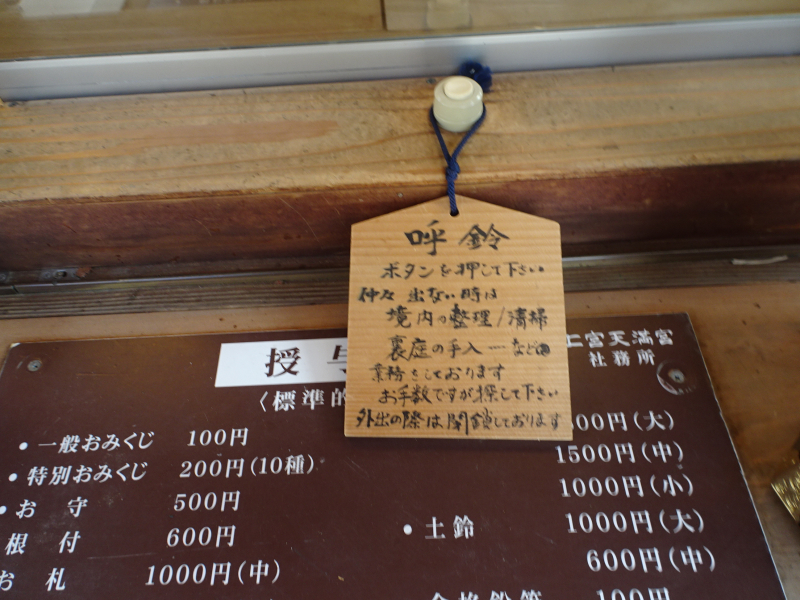 呼鈴
ボタンを押して下さい
仲々 出ない時は
境内の整理/清掃
裏庭の手入ーなど
業務をしております
お手数ですが探して下さい
外出の際は閉鎖しております
授与
〈標準的
二宮天満宮
社務所
・一般おみくじ 100円
・特別おみくじ 200円(10種)
・お守 500円
根付 600円
お札 1000円(中)
00円(大)
1500円(中)
1000円(小)
・土鈴 1000円(大)
600円(中)
合格鉛筆 100円